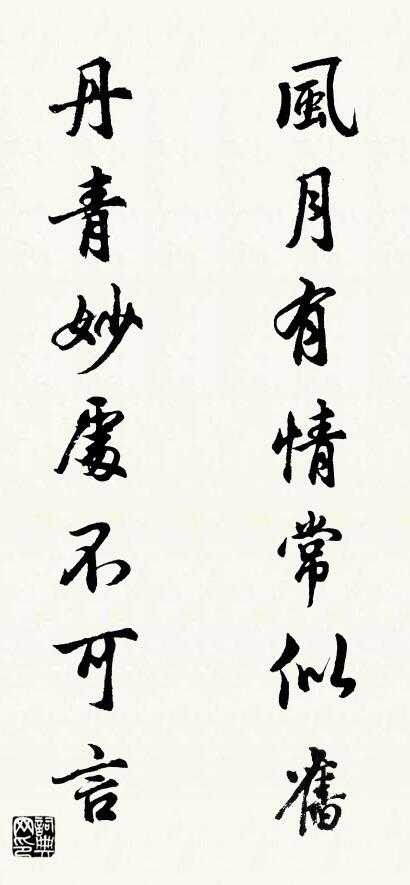 風月有情常似舊
丹青妙處不可言
詞典网印